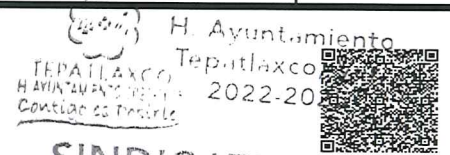 H. Ayuntamiento
Tepatlaxco
2022-20
TEPATLAXCO
H AYUNTAMIENTO
Contigo es Posible
SINDICATU